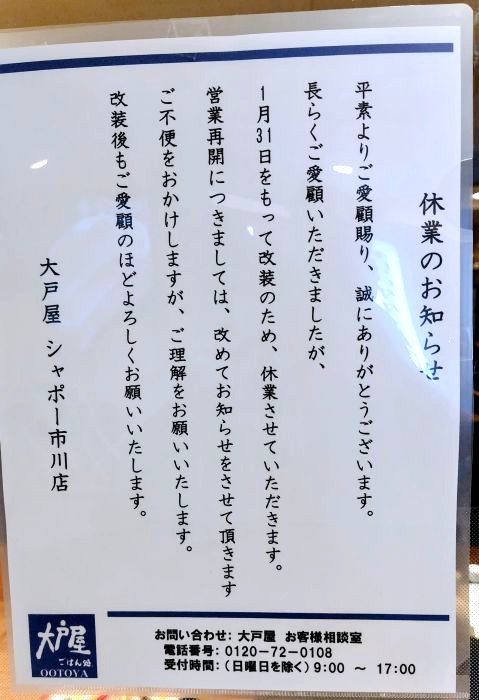 休業のお知らせ
平素よりご愛顧賜り、誠にありがとうございます。
長らくご愛顧いただきましたが、
1月31日をもって改装のため、休業させていただきます。
営業再開につきましては、改めてお知らせをさせて頂きます
ご不便をおかけしますが、ご理解をお願いいたします。
改装後もご愛顧のほどよろしくお願いいたします。
大戸屋 シャポー市川店
大戸屋
ごはん処
OOTOYA
お問い合わせ: 大戸屋 お客様相談室
電話番号: 0120-72-0108
受付時間:(日曜日を除く)9:00 ～ 17:00